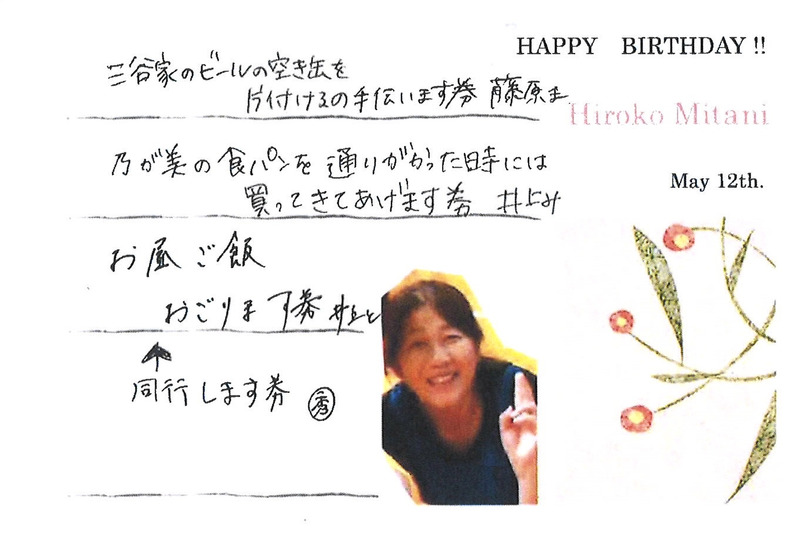 HAPPY BIRTHDAY !!
Hiroko Mitani
May 12th.
三谷家のビールの空き缶を
片付けるの手伝います券 藤原ま
乃が美の食パンを通りがかった時には
買ってきてあげます券 井上み
お昼ご飯
おごります券 井上と
同行します券 秀